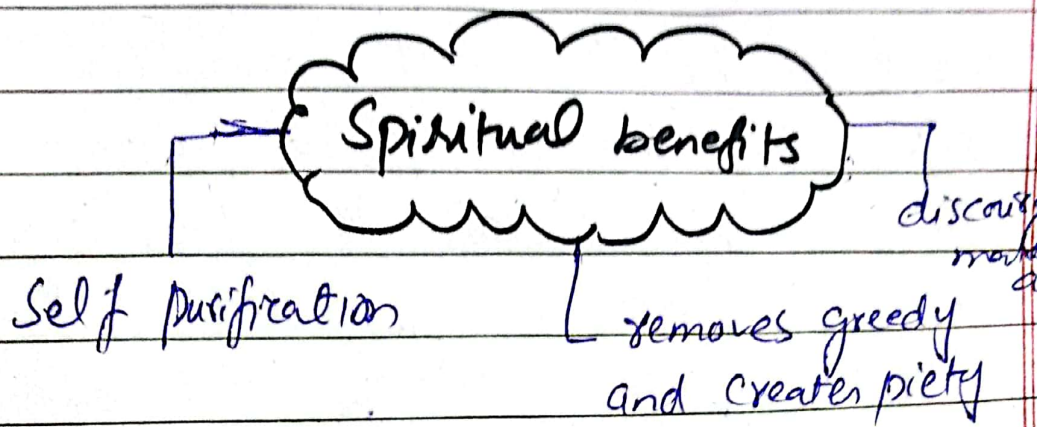 Spiritual benefits
Self purification
removes greedy
and creates piety